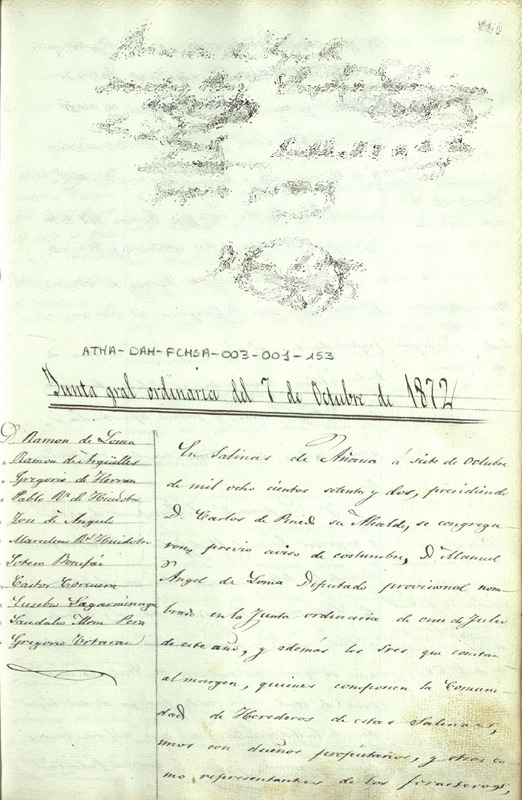 ATHA-DAH-FCHSA-003-001-153
Junta gral ordinaria del 7 de Octubre de 1872
D. Ramon de Loma
" Ramon de Argüelles
" Gregorio de Herran
" Pablo Rz. de Huidobro
" José de Angulo
" Marcelino Rz. Huidobro
Sotero Bonifáz
Castor Corcuera
" Eusebio Lagarminaga
" Sandalio
Gregorio
En Salinas de Añana á siete de Octubre
de mil ocho cientos setenta y dos, presidiendo
D. Carlos de su Alcalde, se congrega
ron, previo aviso de costumbre, D. Manuel
Angel de Loma Deputado provisional nom
brado en la Junta ordinaria de once de Julio
de este año, y además los Sres que constan
al margen, quienes componen la Comuni
dad de Herederos de estas Salinas,
unos con dueños propietarios, y otros co
mo representantes de los forasteros,